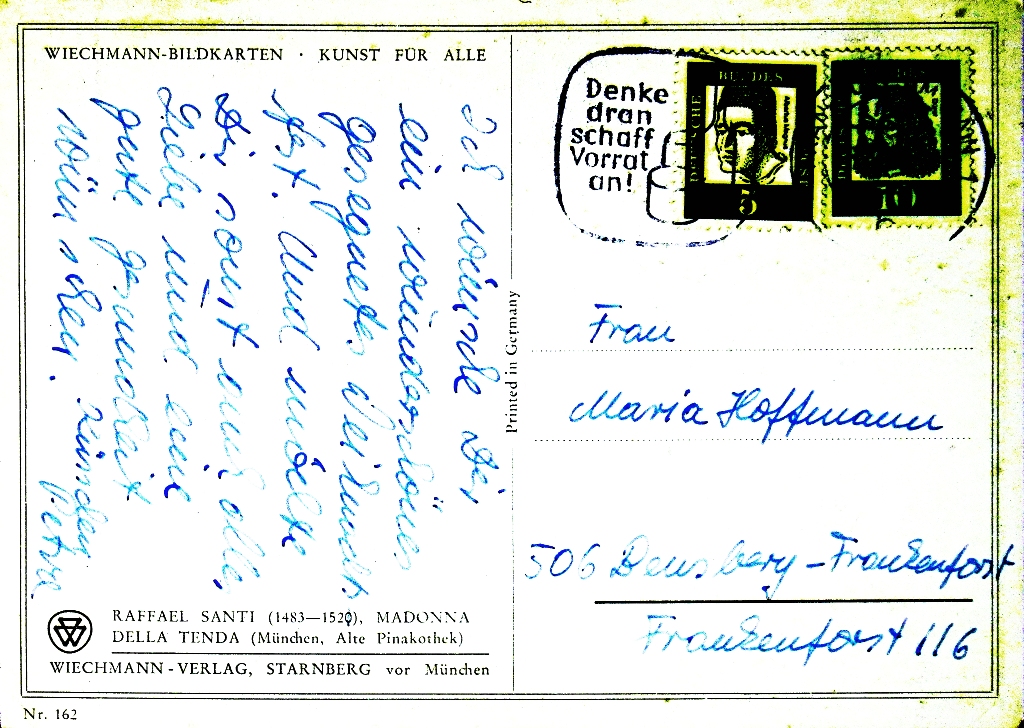 WIECHMANN-BILDKARTEN · KUNST FÜR ALLE
Ich wünsche Dir
ein wunderschönes
gesegnetes Weihnachts
fest. Und möchte
Dir somit auch alles
Liebe und eine
gute Gesundheit
wünschen.
Petra
RAFFAEL SANTI (1483—1520), MADONNA
DELLA TENDA (München, Alte Pinakothek)
WIECHMANN-VERLAG, STARNBERG vor München
Nr. 162
Printed in Germany
Denke
dran
schaff
Vorrat
an!
DEUTSCHE BUNDES
5
10
Frau
Maria Hoffmann
506 Bensberg-Frankenforst
Frankenforst 116